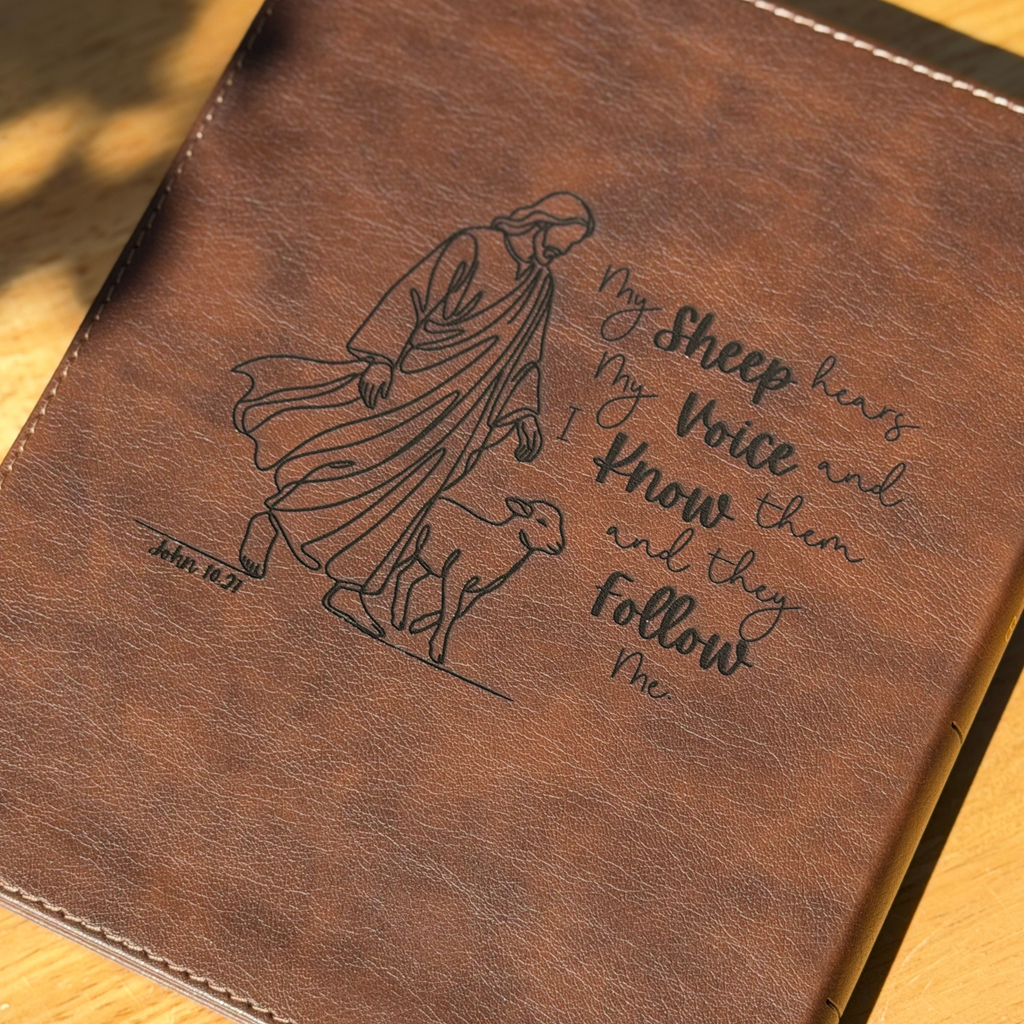 My Sheep hears
My Voice and
I Know them
and they
Follow
Me.
John 10:21